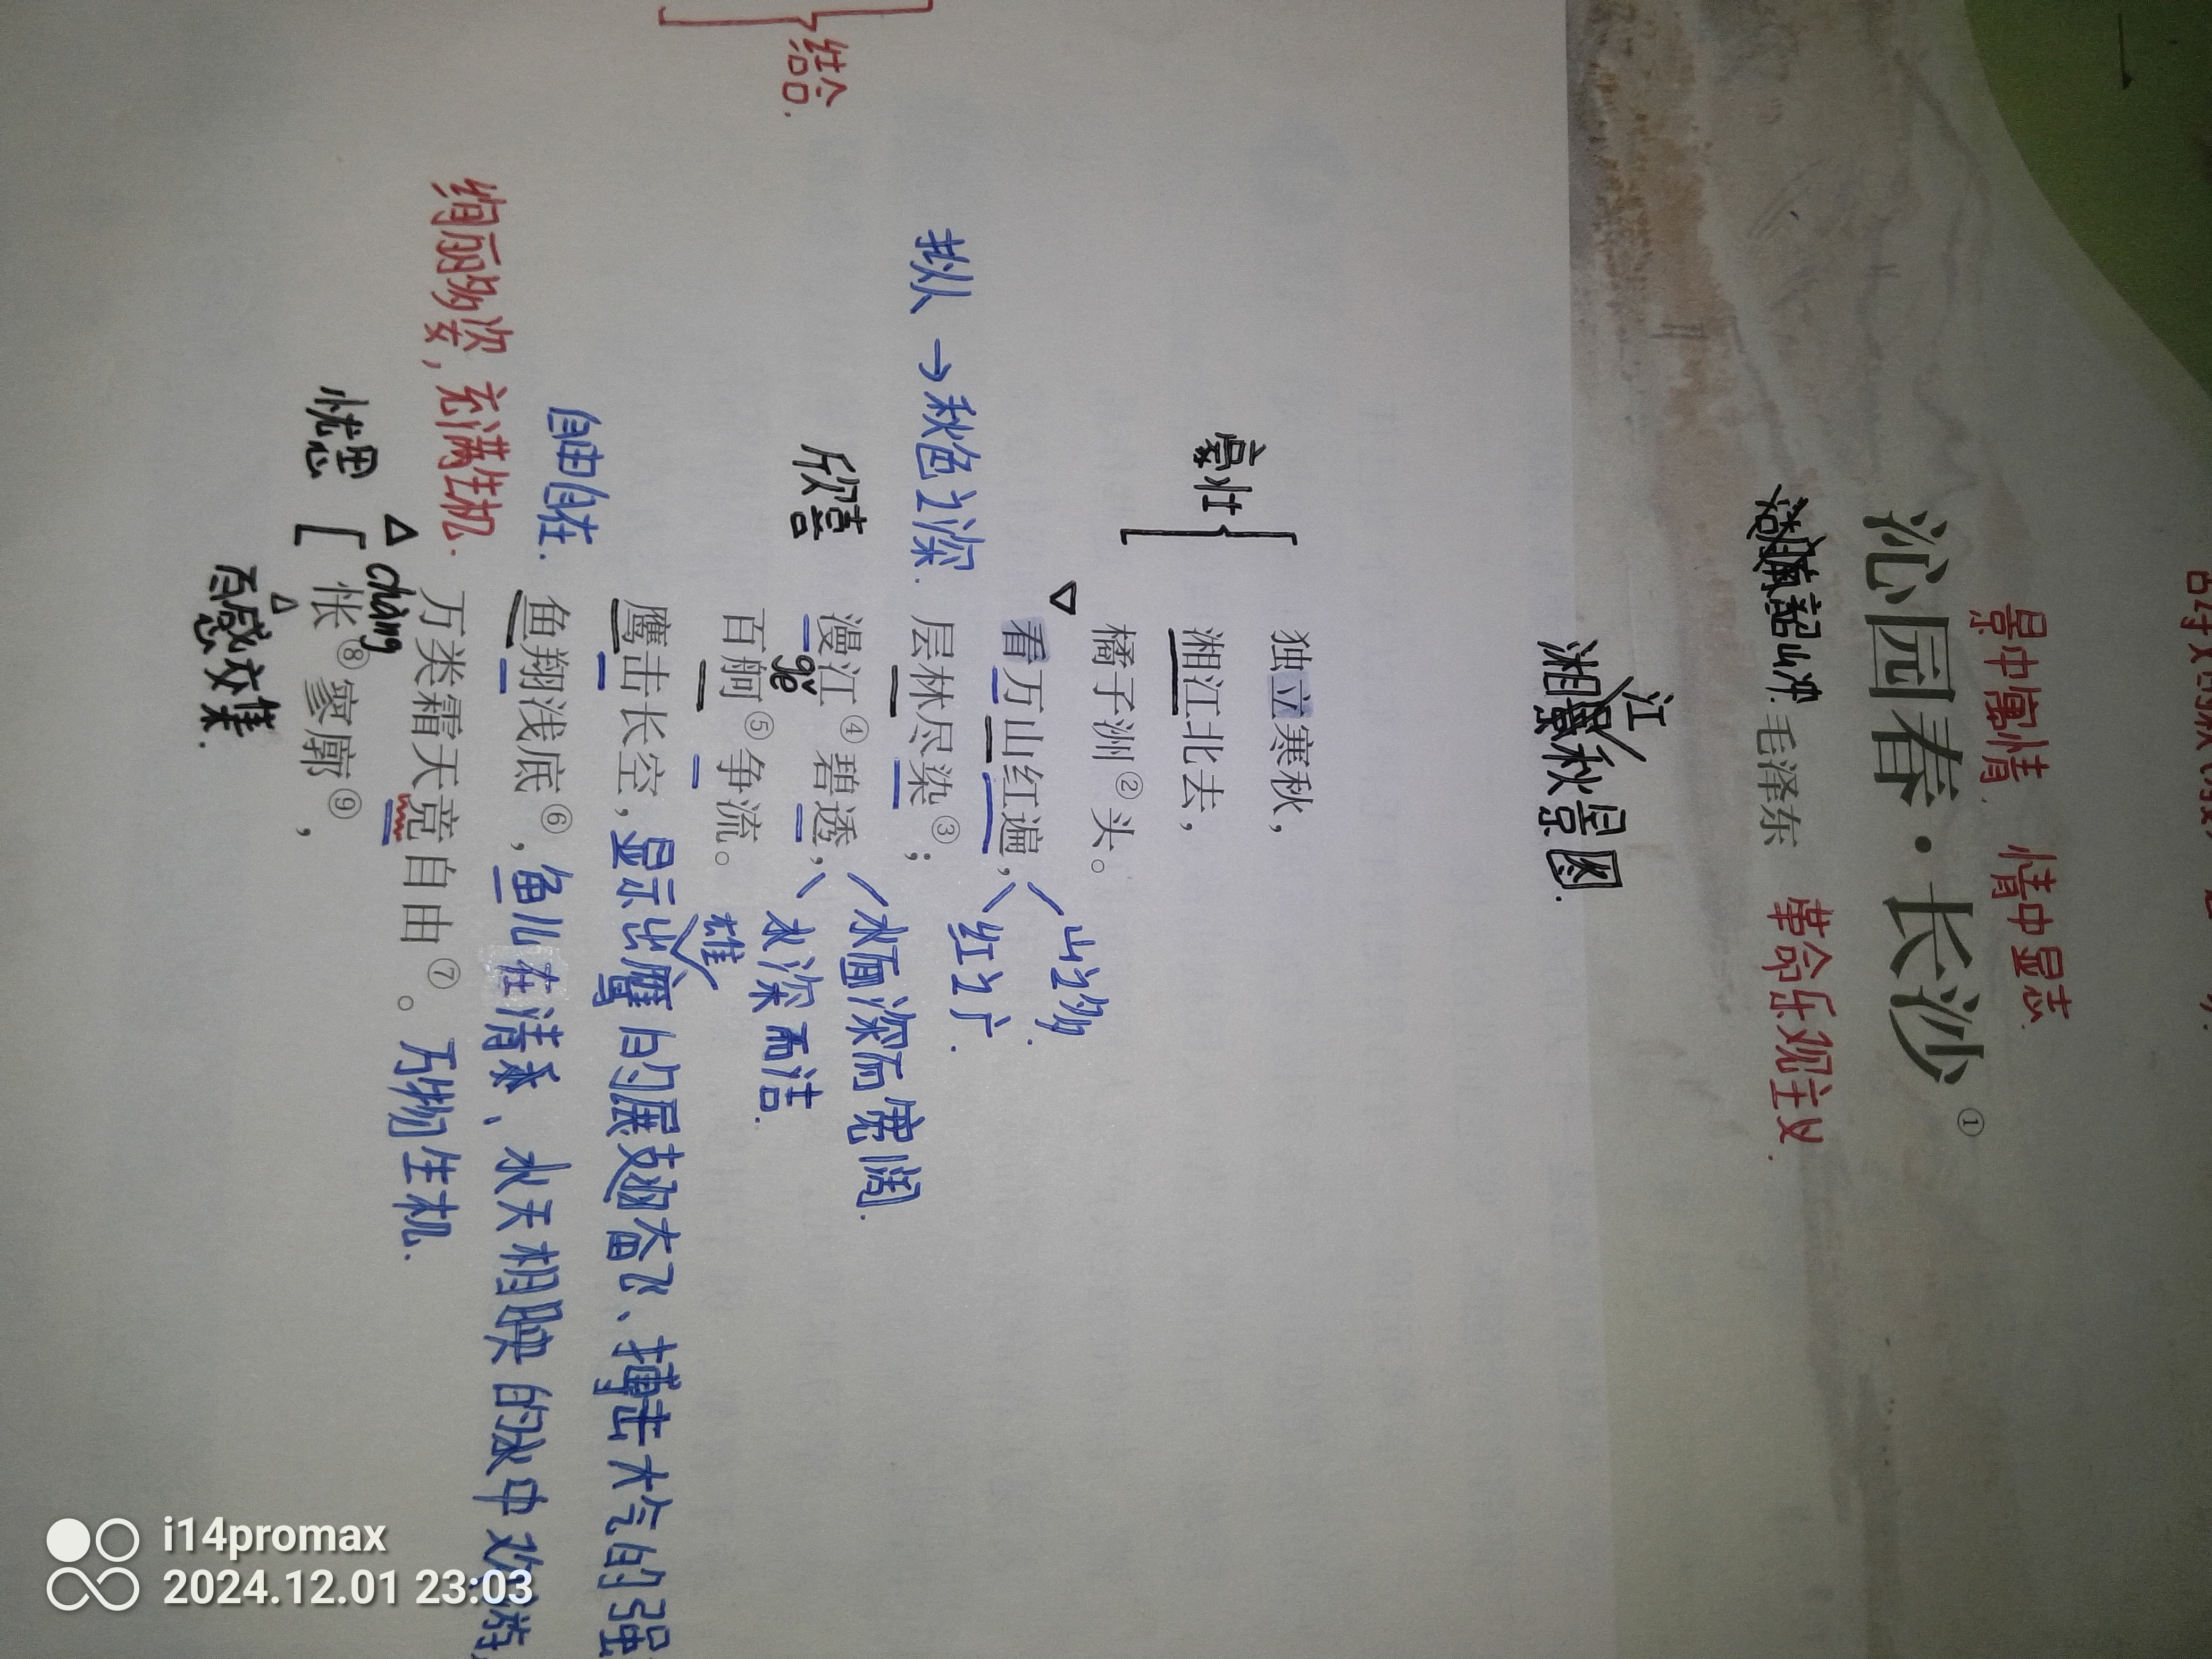 景中寓情. 情中显志.
沁园春·长沙①
湖南韶山冲. 毛泽东 革命乐观主义.
江
湘秋景图.
独立寒秋,
豪壮
湘江北去,
橘子洲②头。
看万山红遍, 山之多.
红之广.
拟人→秋色之深.
层林尽染③;
漫江④碧透, 水面深而宽阔.
水深而洁.
欣喜
gě
百舸⑤争流。
雄
鹰击长空, 显示出鹰的展翅奋飞、搏击大气的强
自由自在.
鱼翔浅底⑥, 鱼儿在清澈、水天相映的水中欢游
绚丽多姿, 充满生机.
万类霜天竞自由⑦。 万物生机.
chàng
忧思
怅⑧寥廓⑨,
百感交集.
结合.
i14promax
2024.12.01 23:03